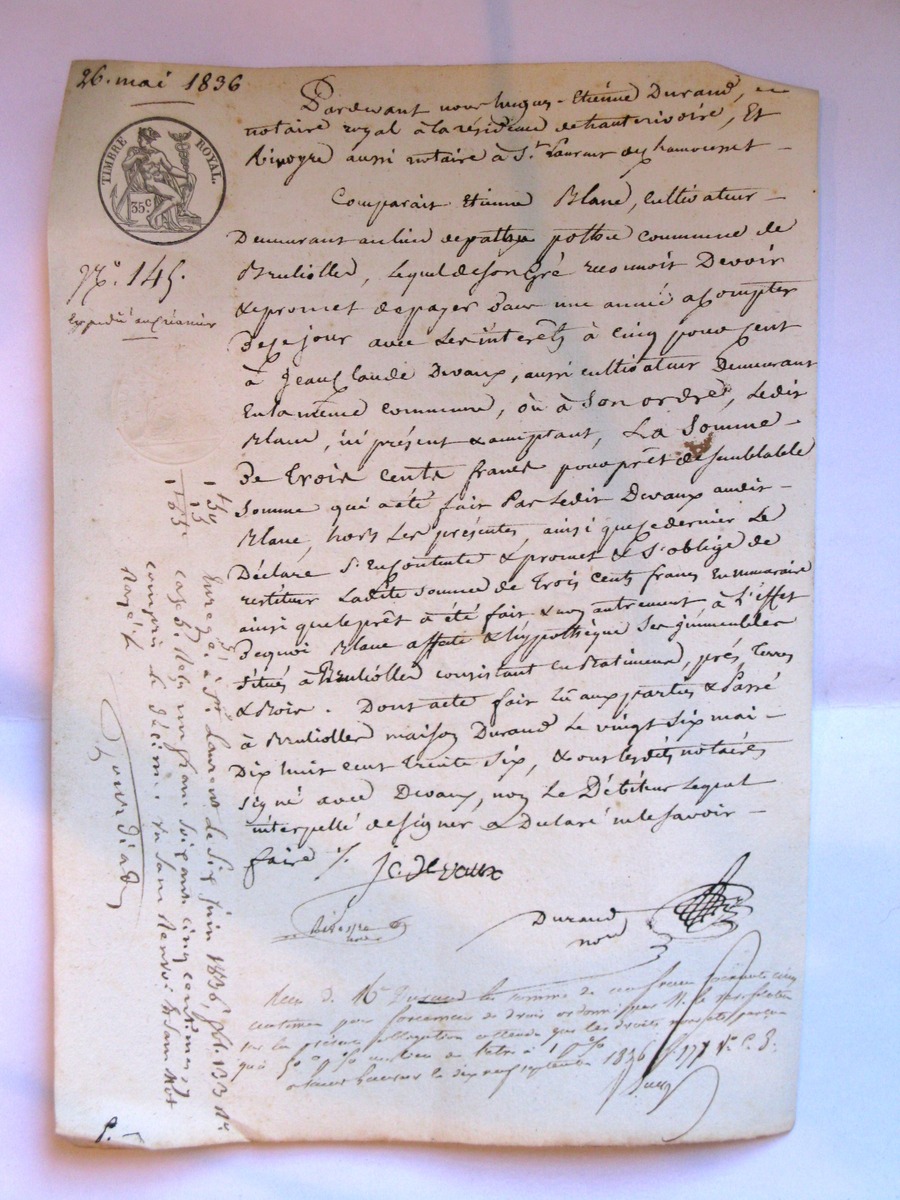 26. mai 1836
TIMBRE ROYAL.
35 c.
N.º 145.
Expédié au créancier
Pardevant nous hugues-Etiénne Durand,
notaire royal à la résidence de hauterivoire, Et
aussi notaire à S.t Laurent de chamousset
Comparait Etiénne Blanc, Cultivateur
Demeurant au lieu de pottou commune de
Brulioller, lequel de son Gré reconnoit Devoir
& promet de payer Dans une année a Compter
De ce jour avec Les interêts à cinq pour cent
à Jean Claude Devaux, aussi cultivateur Demeurant
En la même commune, où à Son ordre, Ledit
Blanc, ici présent & acceptant, La Somme
De Trois Cents francs pour prêt de semblable
Somme qui a été fait Par Ledit Devaux audit
Blanc, hors Les présentes, ainsi que ce dernier Le
Déclare S'En Contente & promet & S'oblige de
restituer Ladite somme de trois cents francs En numeraire
ainsi que le prêt a été fait & non autrement, à L'effet
De quoi Blanc affecte & hypothèque Ses immeubles
Situés à Brulioller consistant en Batiments, prés, Terres
& Bois. Dont acte fait Lû aux parties & Passé
à Brulioller maison Durand Le vingt six mai
Dix huit cent Trente Six, & ont lesdits notaires
Signé avec Devaux, non Le Débiteur Lequel
interpellé de signer a Déclaré ne le savoir
faire ./.
J C devaux
Durand
Enregé. à St. Laurent le Six juin 1836, fol. 133 Vo.
case 5. Reçu un franc soixante cinq centimes
compris le décime
Reçu de Me Durand la somme de un franc soixante cinq
centimes pour
sur la présente obligation attendu que les droits
1836